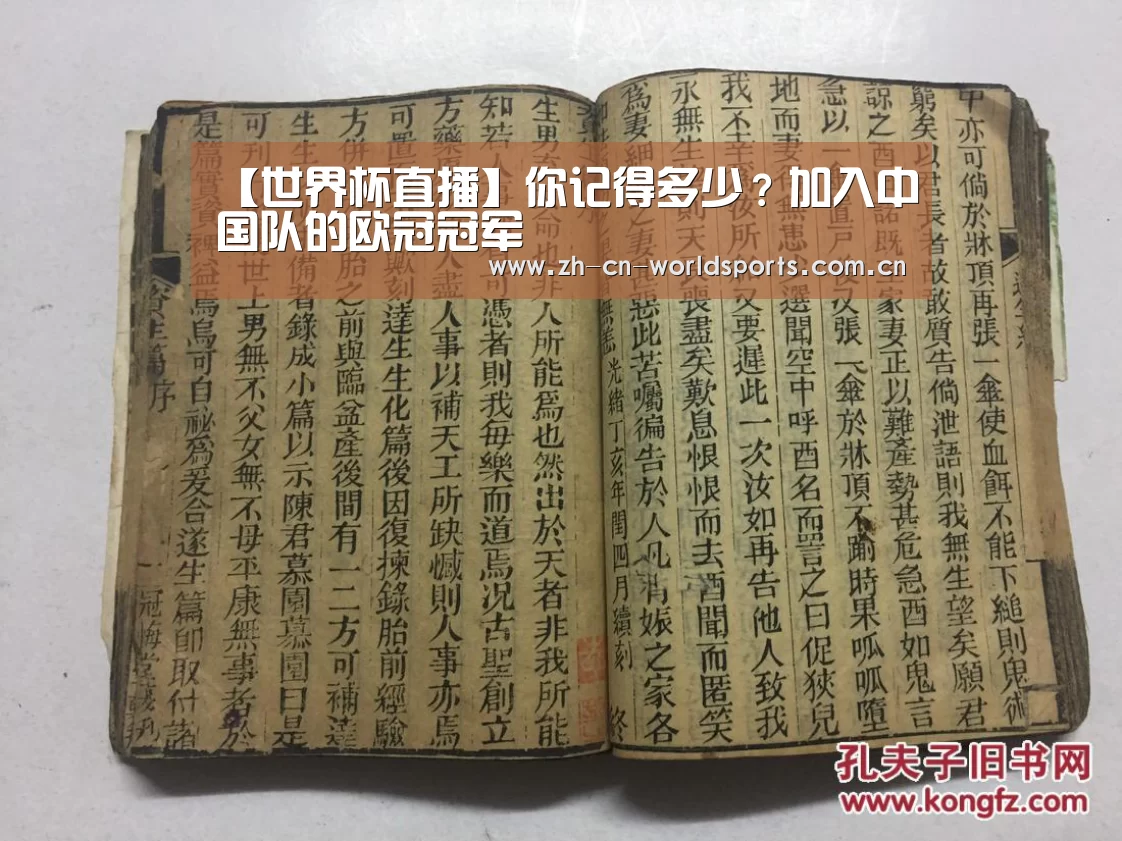 【世界杯直播】你记得多少？加入中
国队的欧冠冠军
www.zh-cn-worldsports.com
中亦可倘於牀頂再張一傘使血餌不能下縋則鬼術
窮矣以君長者故敢質告倘泄語則我無生望矣願君
諒之酉諾既家妻正以難產勢甚危急酉如鬼言
急以一傘直戶又張一傘於牀頂不踰時果呱呱墮
地而妻無恙選聞空中呼酉名而詈之曰促狹兒
我不所又要遲此一次汝如再告他人致我
永無生則天喪盡矣歎息恨恨而去酉聞而匿笑
爲妻細之妻惡此苦囑徧告於人凡有娠之家各
光緒丁亥年閏四月續刻 終
生男命也非人所能爲也然出於天者非我所能
知若人可憑者則我每樂而道焉况古聖創立
方藥人盡人事以補天工所缺憾則人事亦焉
可置歟刻達生生化篇後因復揀錄胎前經驗
方併胎之前與臨盆產後間有一二方可補達
生生備者錄成小篇以示陳君慕園慕園曰是
可刊世上男無不父女無不母平康無事者於
是篇實資裨益焉烏可自祕爲爰合遂生篇卽取付諸
資生篇序 一 冠悔堂
孔夫子旧书网
www.kongfz.com